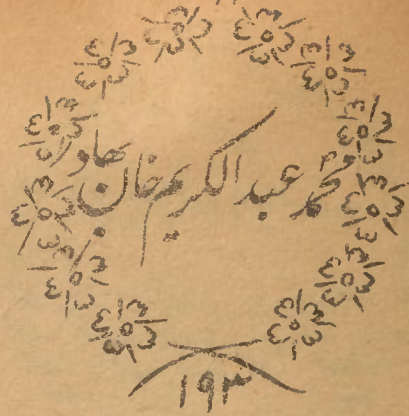 محمد عبد الکریم خان بہادر
۱۹۳